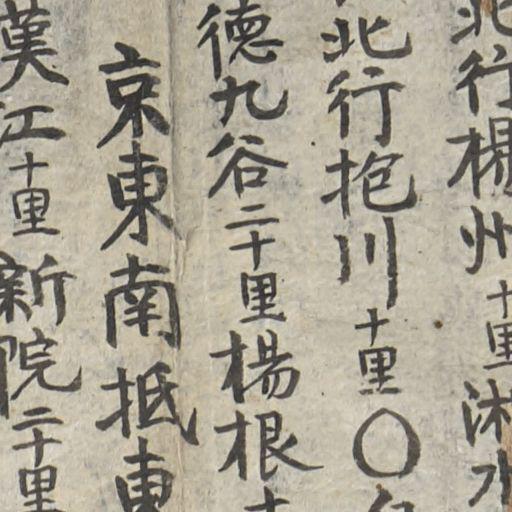 北行楊州十里沐水
北行抱川十里〇
德九谷二十里楊根十
京東南抵東
漢江十里新院二十里